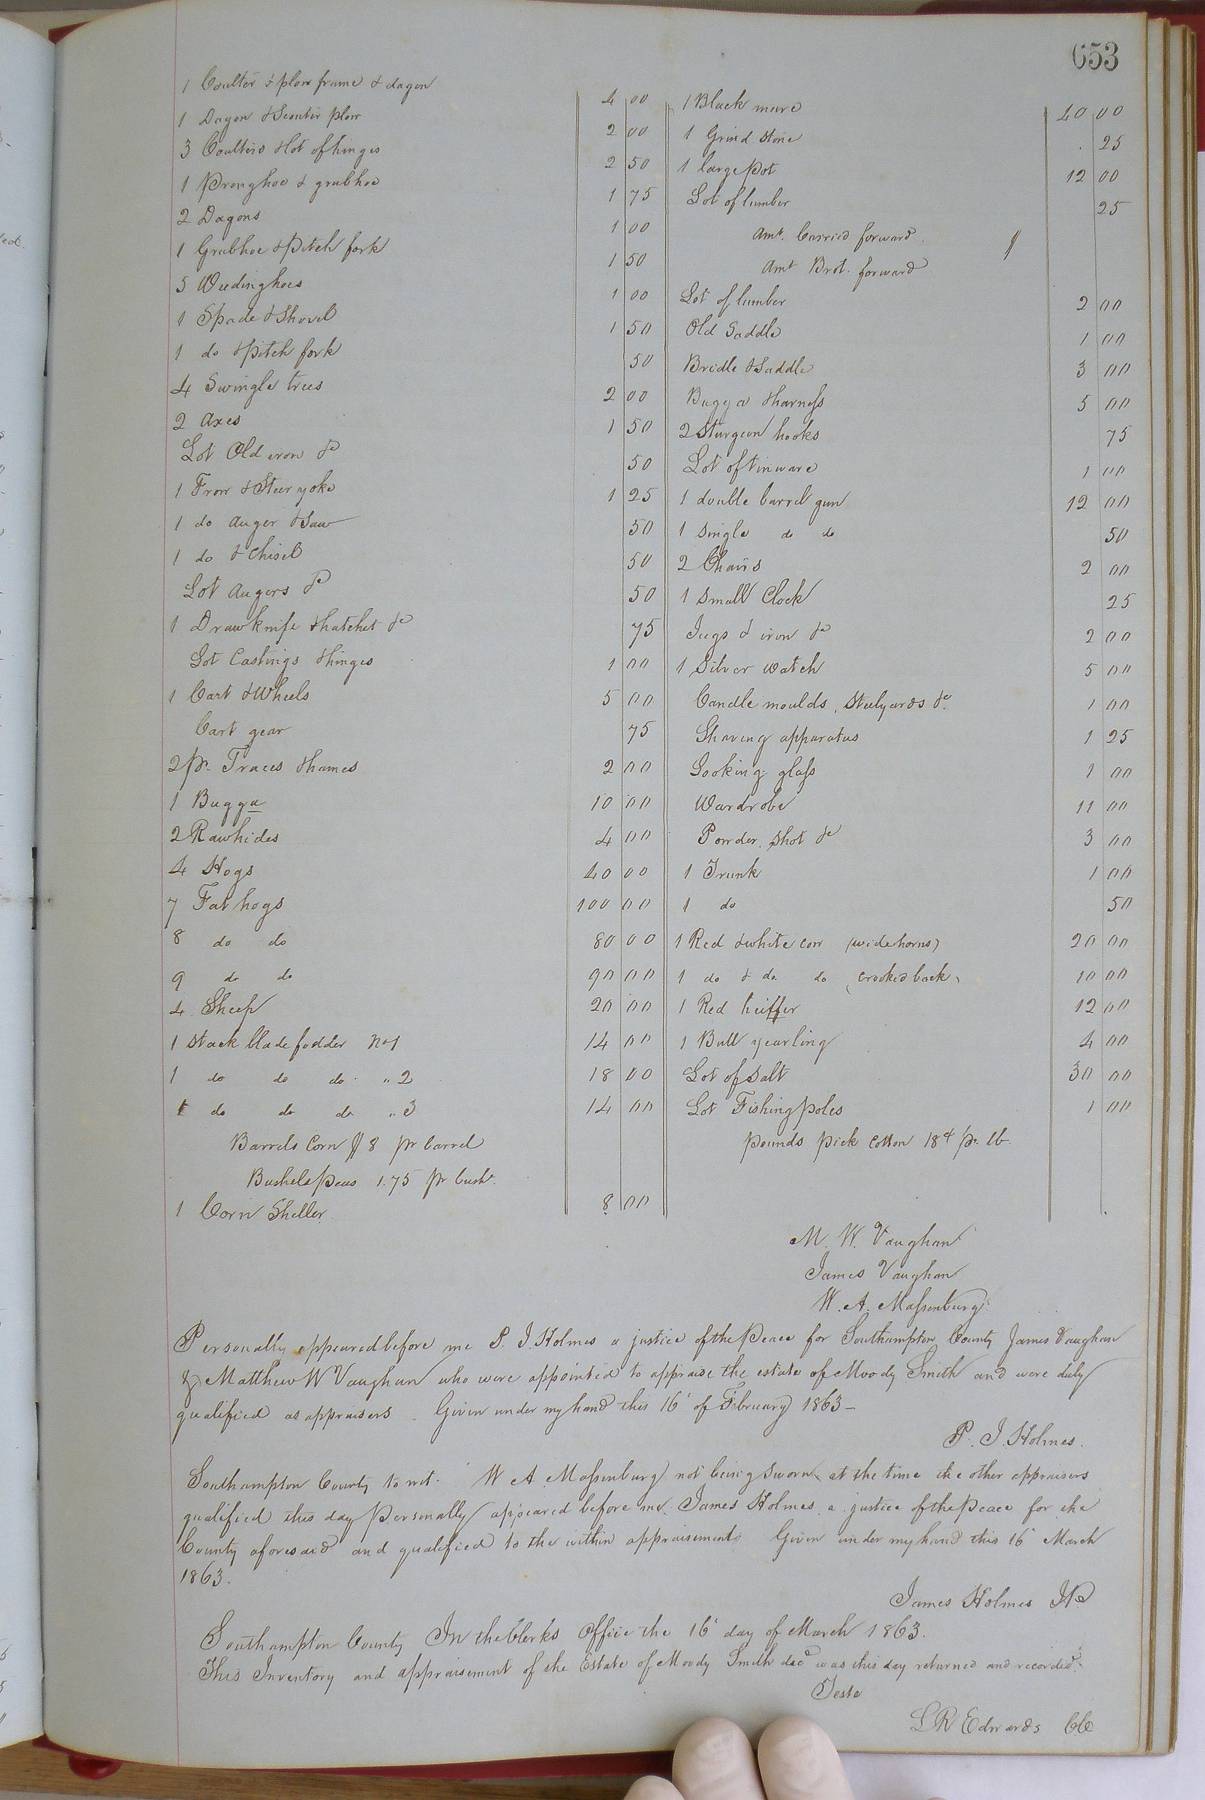 653
1 Coulter & plow frame & dagon 4 00
1 Dagon & Scouter plow 2 00
3 Coulters & lot of hinges 2 50
1 Pronghoe & grubhoe 1 75
2 Dagons 1 00
1 Grubhoe & Pitch fork 1 50
5 Weedinghoes 1 00
1 Spade & Shovel 1 50
1 do & pitch fork 50
4 Swingle trees 2 00
2 Axes 1 50
Lot Old iron &c 50
1 Frow & Steer yoke 1 25
1 do Auger & Saw 50
1 do & Chisel 50
Lot Augers &c 50
1 Drawknife & hatchet &c 75
Lot Castings & hinges 1 00
1 Cart & Wheels 5 00
Cart gear 75
2 pr. Traces & hames 2 00
1 Bugga 10 00
2 Rawhides 4 00
4 Hogs 40 00
7 Fat hogs 100 00
8 do do 80 00
9 do do 90 00
4 Sheep 20 00
1 Stack blade fodder No 1 14 00
1 do do do " 2 18 00
1 do do do " 3 14 00
Barrels Corn $8 pr barrel
Bushels peas 1.75 pr bush.
1 Corn Sheller 8 00
1 Black mare 40 00
1 Grind stone 25
1 large Pot 12 00
Lot of lumber 25
Amt. Carried forward $
Amt Brot. forward
Lot of lumber 2 00
Old Saddle 1 00
Bridle & Saddle 3 00
Bugga & harness 5 00
2 Sturgeon hooks 75
Lot of tinware 1 00
1 double barrel gun 12 00
1 single do do 50
2 Chairs 2 00
1 Small Clock 25
Jugs & iron &c 2 00
1 Silver Watch 5 00
Candle moulds, Steelyards &c. 1 00
Shaving apparatus 1 25
Looking glass 1 00
Wardrobe 11 00
Powder, Shot &c 3 00
1 Trunk 1 00
1 do 50
1 Red & white cow (wide horns) 20 00
1 do & do do (crooked back) 10 00
1 Red heiffer 12 00
1 Bull yearling 4 00
Lot of Salt 30 00
Lot Fishing poles 1 00
pounds pick cotton 18¢ pr. lb.
M. W. Vaughan
James Vaughan
W. A. Massenburg
Personally appeared before me P. J. Holmes a justice of the Peace for Southampton County James Vaughan
& Matthew W Vaughan who were appointed to appraise the estate of Moody Smith and were duly
qualified as appraisers. Given under my hand this 16 of February 1863 -
P. J. Holmes.
Southampton County to wit. W A. Massenburg not being sworn at the time the other appraisers
qualified this day Personally appeared before me James Holmes a justice of the Peace for the
County aforesaid and qualified to the within appraisement. Given under my hand this 16 March
1863.
James Holmes JP
Southampton County In the Clerks Office the 16 day of March 1863.
This Inventory and appraisement of the Estate of Moody Smith decd was this day returned and recorded.
Teste
L R Edwards CC